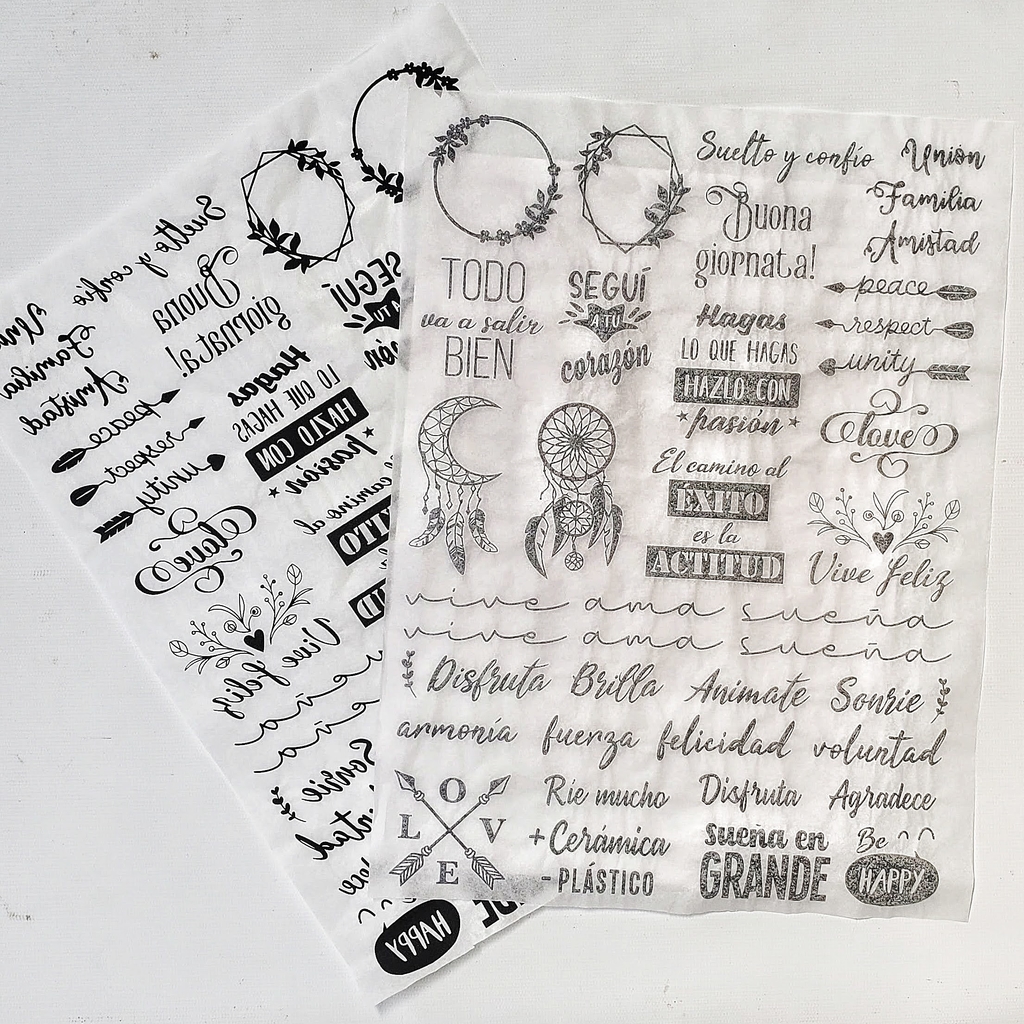 Suelto y confío
Unión
Familia
Amistad
Buona
giornata!
peace
respect
unity
TODO
va a salir
BIEN
SEGUÍ
A TÚ
corazón
Hagas
LO QUE HAGAS
HAZLO CON
pasión
love
El camino al
ÉXITO
es la
ACTITUD
Vive feliz
vive ama sueña
vive ama sueña
Disfruta Brilla Animate Sonrie
armonía fuerza felicidad voluntad
L O V E
Ríe mucho
Disfruta
Agradece
+ Cerámica
- PLÁSTICO
sueña en
GRANDE
Be
HAPPY
Suelto y confío
Familia
Amistad
Buona
giornata!
peace
respect
unity
SEGUÍ
Hagas
LO QUE HAGAS
HAZLO CON
pasión
love
camino al
Vive feliz
Sonrie
HAPPY